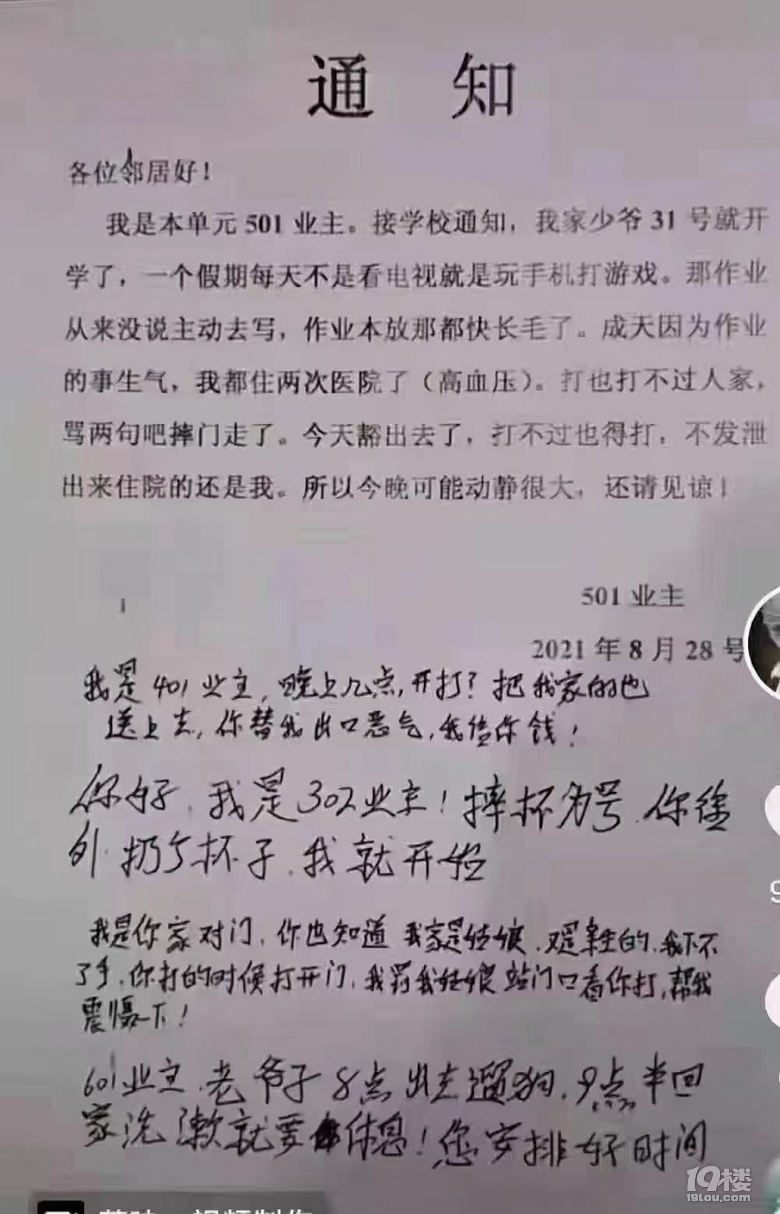 通 知
各位邻居好！
我是本单元 501 业主。接学校通知，我家少爷 31 号就开
学了，一个假期每天不是看电视就是玩手机打游戏。那作业
从来没说主动去写，作业本放那都快长毛了。成天因为作业
的事生气，我都住两次医院了（高血压）。打也打不过人家，
骂两句吧摔门走了。今天豁出去了，打不过也得打，不发泄
出来住院的还是我。所以今晚可能动静很大，还请见谅！
501 业主
2021 年 8 月 28 号
我是401业主，晚上几点，开打？把我家的也
送上去，你替我出口恶气，我给你钱！
你好，我是302业主！摔杯为号，你往
外扔个杯子，我就开始
我是你家对门，你也知道 我家是姑娘，还是亲生的，我下不
了手，你打的时候打开门，我让我姑娘站门口看你打，帮我
震慑一下！
601业主，老爷子8点出去遛狗，9点半回
家洗漱就要休息！您安排好时间
19楼
19lou.com